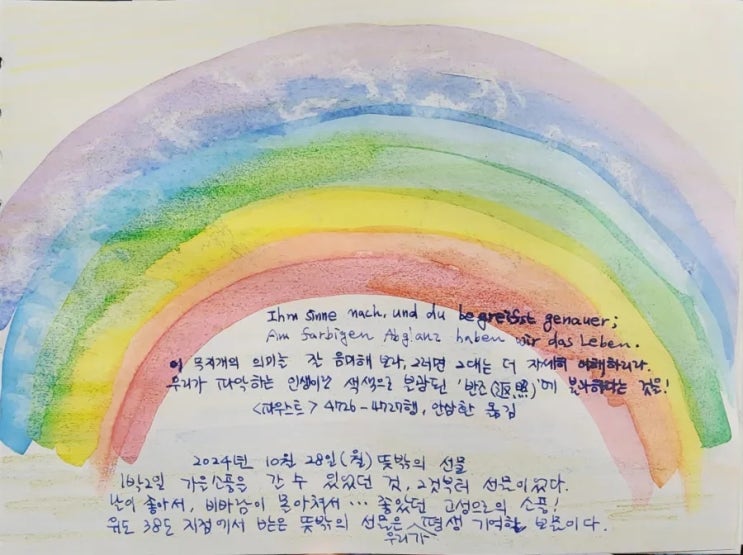 Ihm sinne nach, und du begreifst genauer;
Am farbigen Abglanz haben wir das Leben.
이 무지개의 의미를 잘 음미해 보라, 그러면 그대는 더 자세히 이해하리라.
우리가 파악하는 인생이란 색색으로 굴절된 '반조(返照)'에 불과하다는 것을!
<파우스트> 4726-4727행, 안삼환 옮김
2024년 10월 28일(월) 뜻밖의 선물
1박2일 가을소풍을 갈 수 있었던 것, 그것부터 선물이었다.
날이 좋아서, 비바람이 몰아쳐서… 좋았던 고성으로의 소풍!
위도 38도 지점에서 받은 뜻밖의 선물은 우리가 평생 기억할 보물이다.